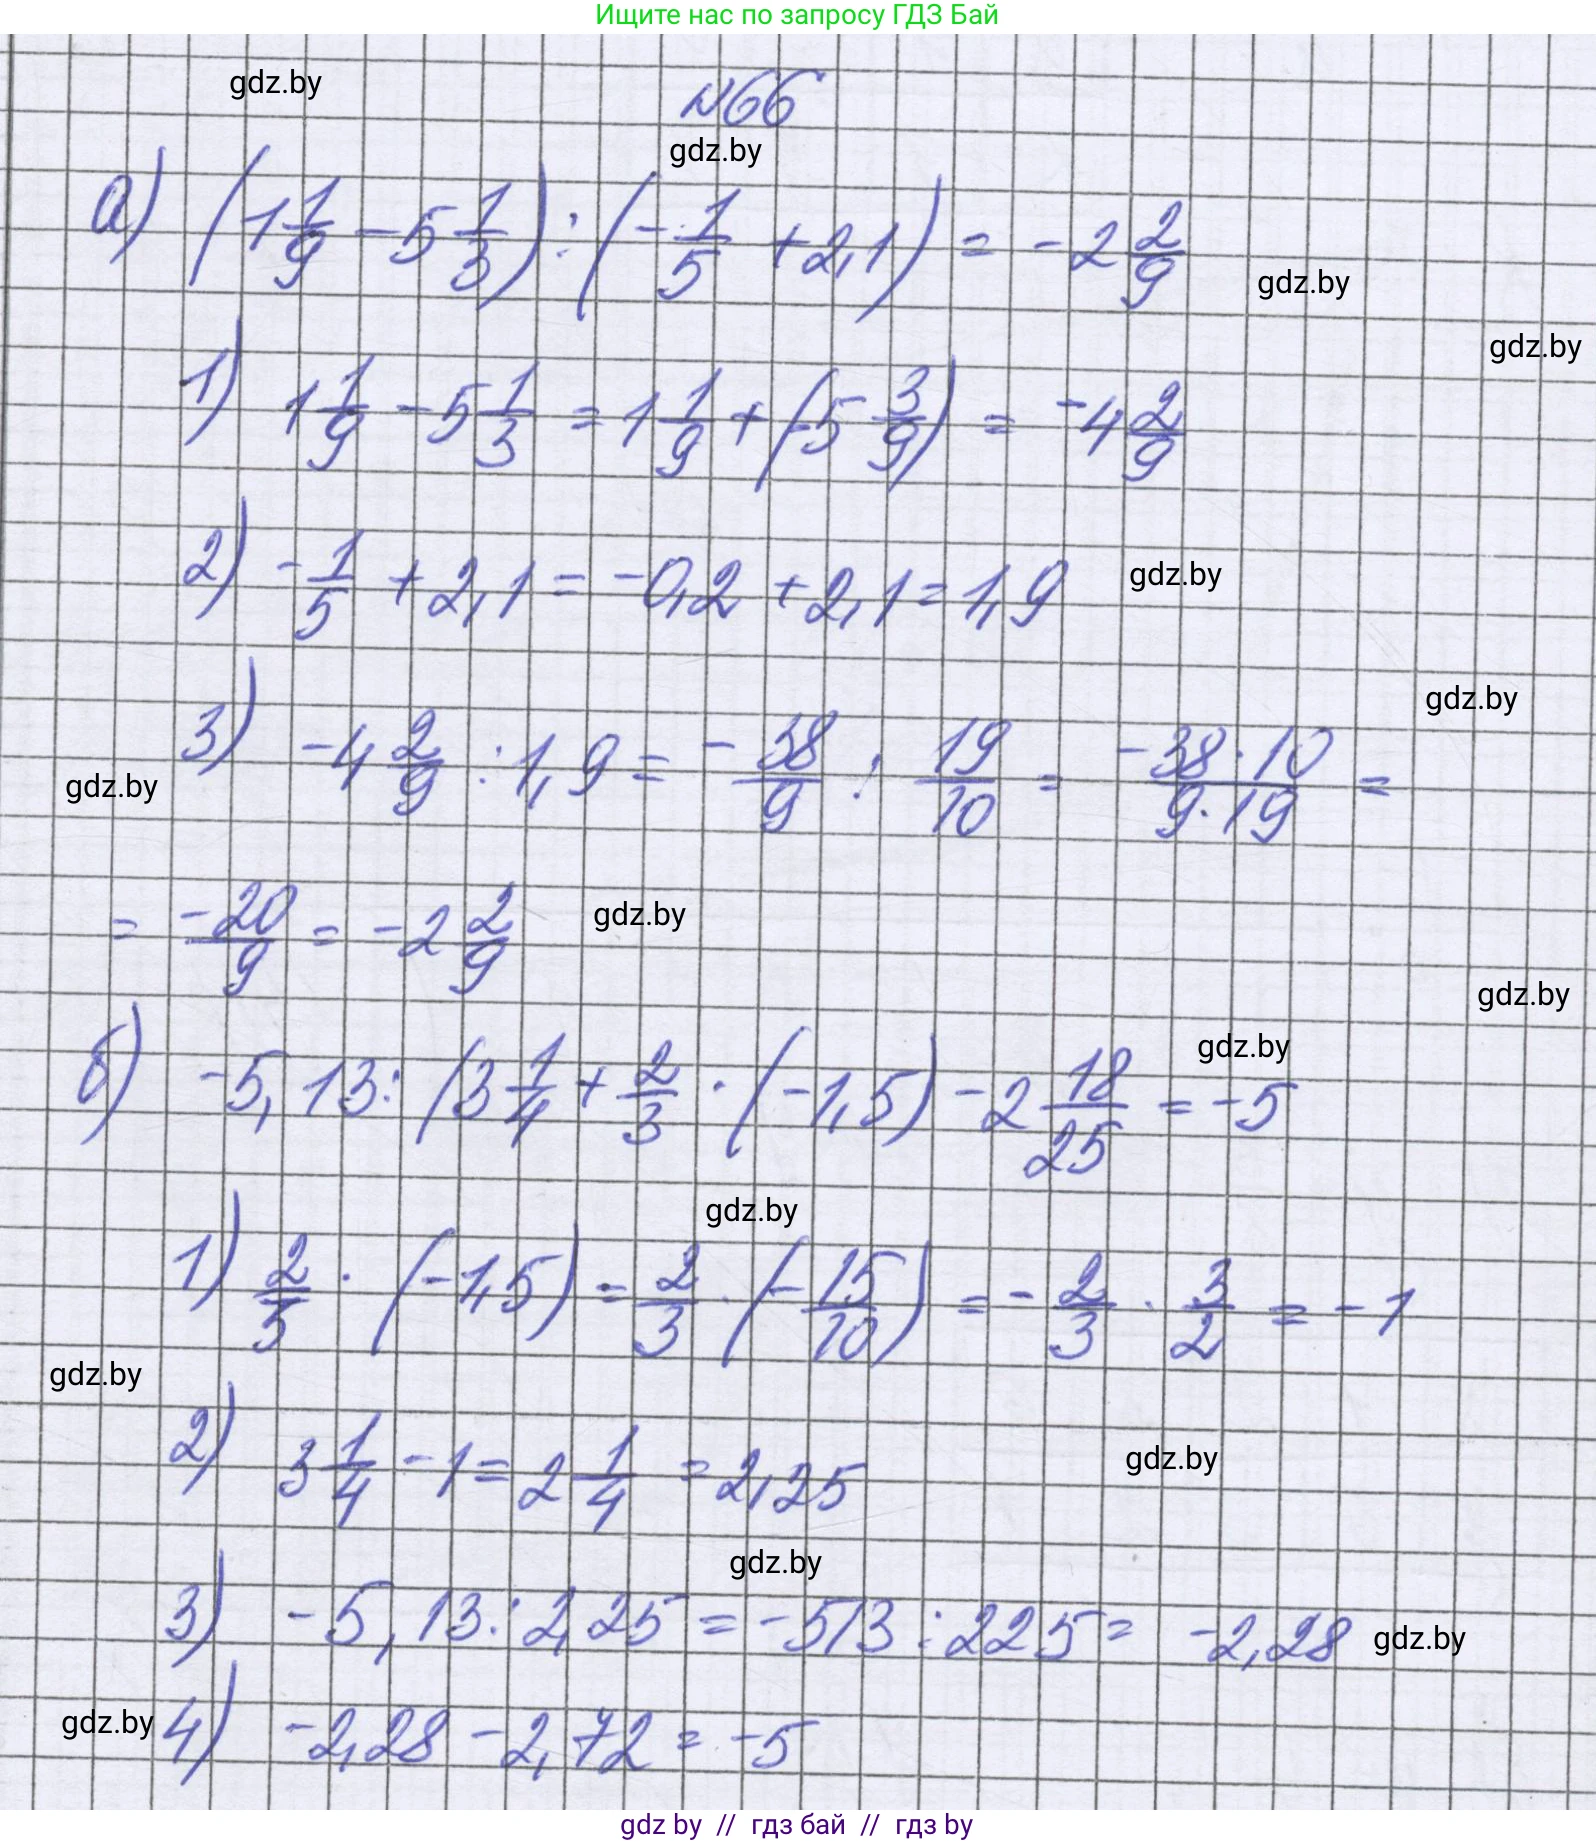 Ищите нас по запросу ГДЗ Бай
gdz.by
№66
gdz.by
а) (1 1/9 - 5 1/3) : (- 1/5 + 2,1) = - 2 2/9
gdz.by
gdz.by
1) 1 1/9 - 5 1/3 = 1 1/9 + (-5 3/9) = -4 2/9
2) - 1/5 + 2,1 = -0,2 + 2,1 = 1,9
gdz.by
gdz.by
3) -4 2/9 : 1,9 = - 38/9 : 19/10 = -38·10/9·19 =
gdz.by
= -20/9 = -2 2/9
gdz.by
gdz.by
gdz.by
б) -5,13 : (3 1/4 + 2/3 · (-1,5) - 2 18/25 = -5
gdz.by
1) 2/3 · (-1,5) = 2/3 · (- 15/10) = - 2/3 · 3/2 = - 1
gdz.by
2) 3 1/4 - 1 = 2 1/4 = 2,25
gdz.by
gdz.by
3) -5,13 : 2,25 = -513 : 225 = -2,28
gdz.by
gdz.by
4) -2,28 - 2,72 = -5
gdz by // гдз бай // гдз by